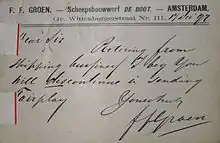 F. F. GROEN, — Scheepsbouwwerf DE BOOT. — AMSTERDAM,
Gr. Wittenburgerstraat Nr. 111.
Dear Sir
Retiring from
shipping business I beg you
will discontinue in sending
Fairplay
Yours truly
F F Groen